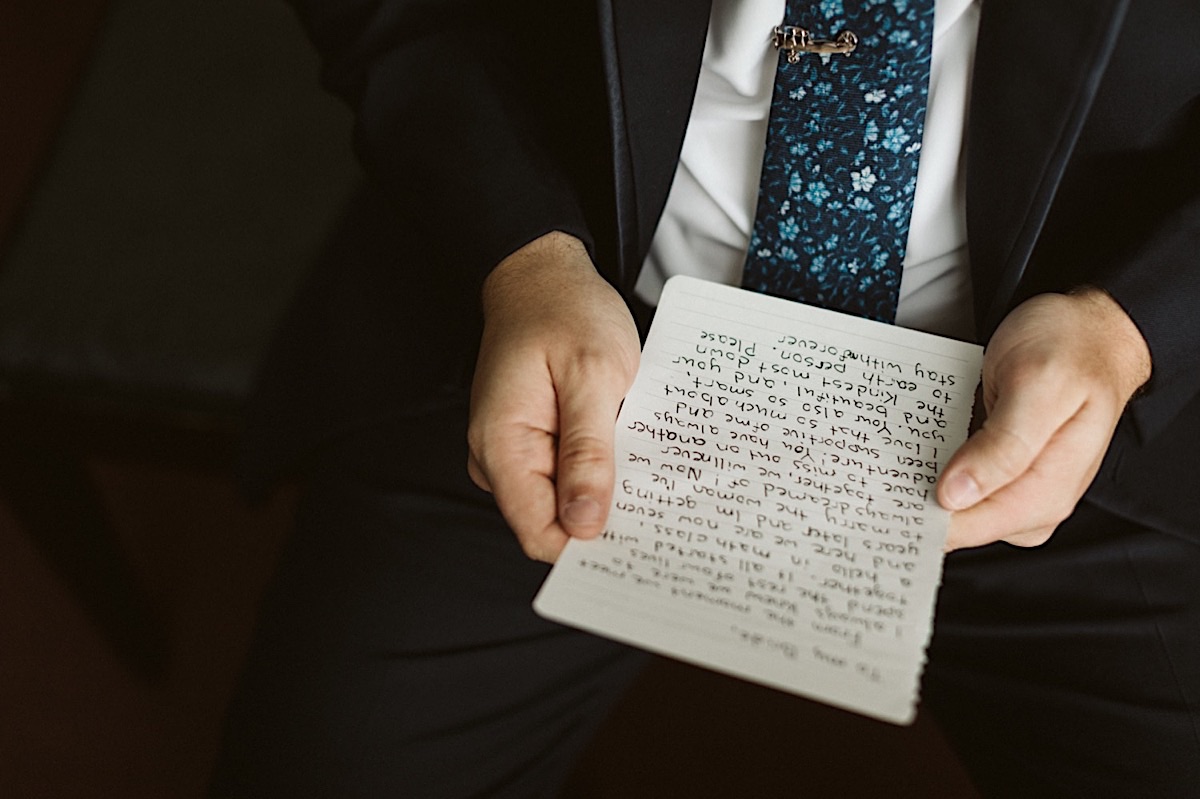 To my Bride,
From the moment we meet
I always knew we were to
spend the rest of our lives
together. It all started with
a hello in math class,
and here we are now seven
years later and Im getting
to marry the woman Ive
always dreamed of! Now we
are together, we will never
have to miss out on another
adventure! You have always
been supportive of me and
I love that so much about
you. Your also so smart,
and beautiful, and you
the kindest most down
to earth person. Please
stay with me forever.